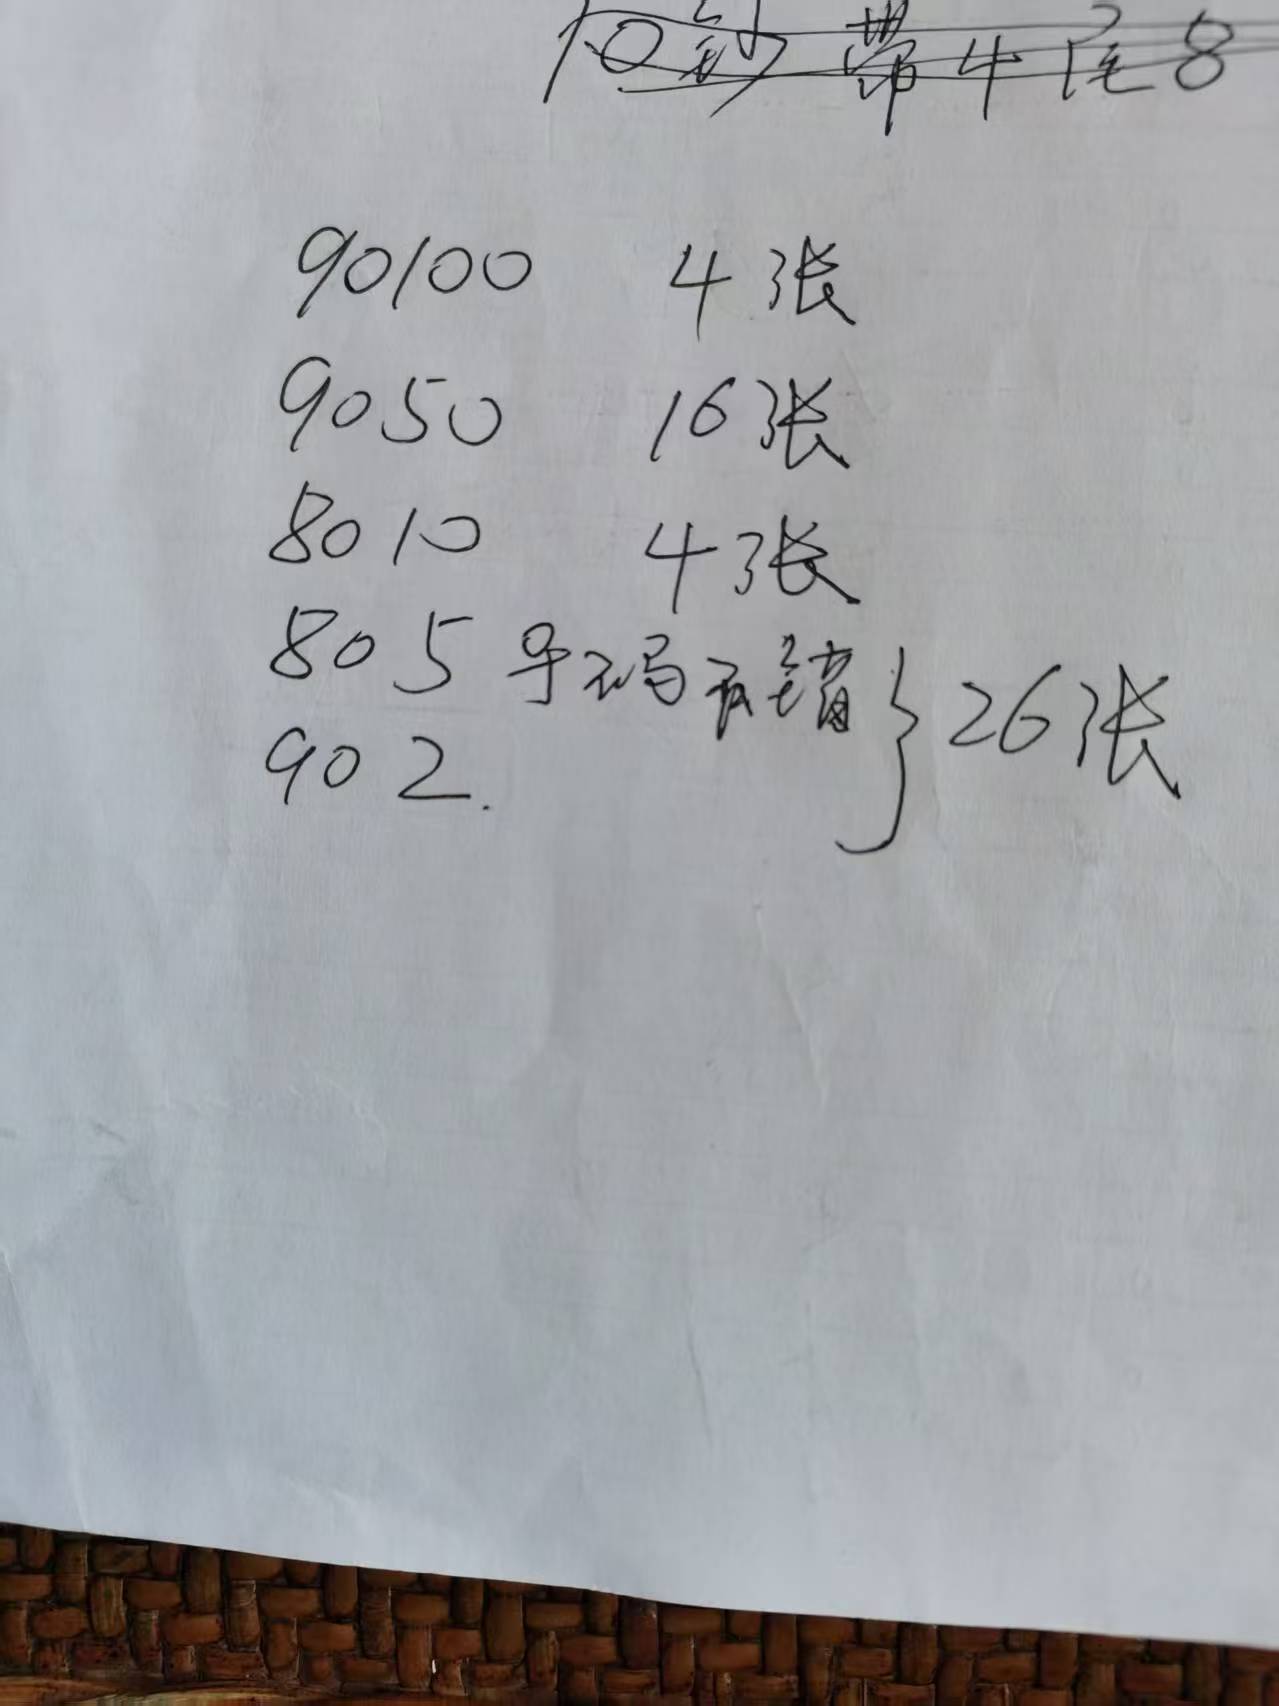 10钞 带4尾8
90100 4张
9050 16张
8010 4张
805 号码无错 } 26张
902.